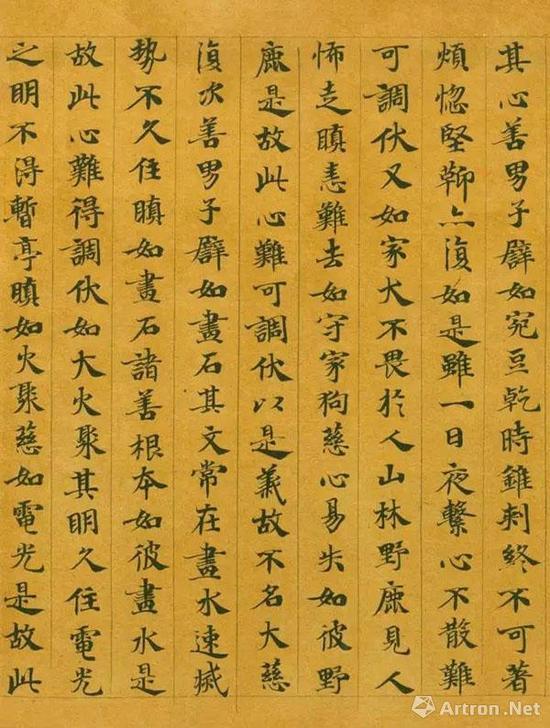 其心善男子譬如宛豆乾時錐刺終不可著
煩惱堅鞕亦復如是雖一日夜繫心不散難
可調伏又如家犬不畏於人山林野鹿見人
怖走瞋恚難去如守家狗慈心易失如彼野
鹿是故此心難可調伏以是義故不名大慈
復次善男子譬如畫石其文常在畫水速滅
勢不久住瞋如畫石諸善根本如彼畫水是
故此心難得調伏如大火聚其明久住電光
之明不得暫亭瞋如火聚慈如電光是故此
Artron.Net